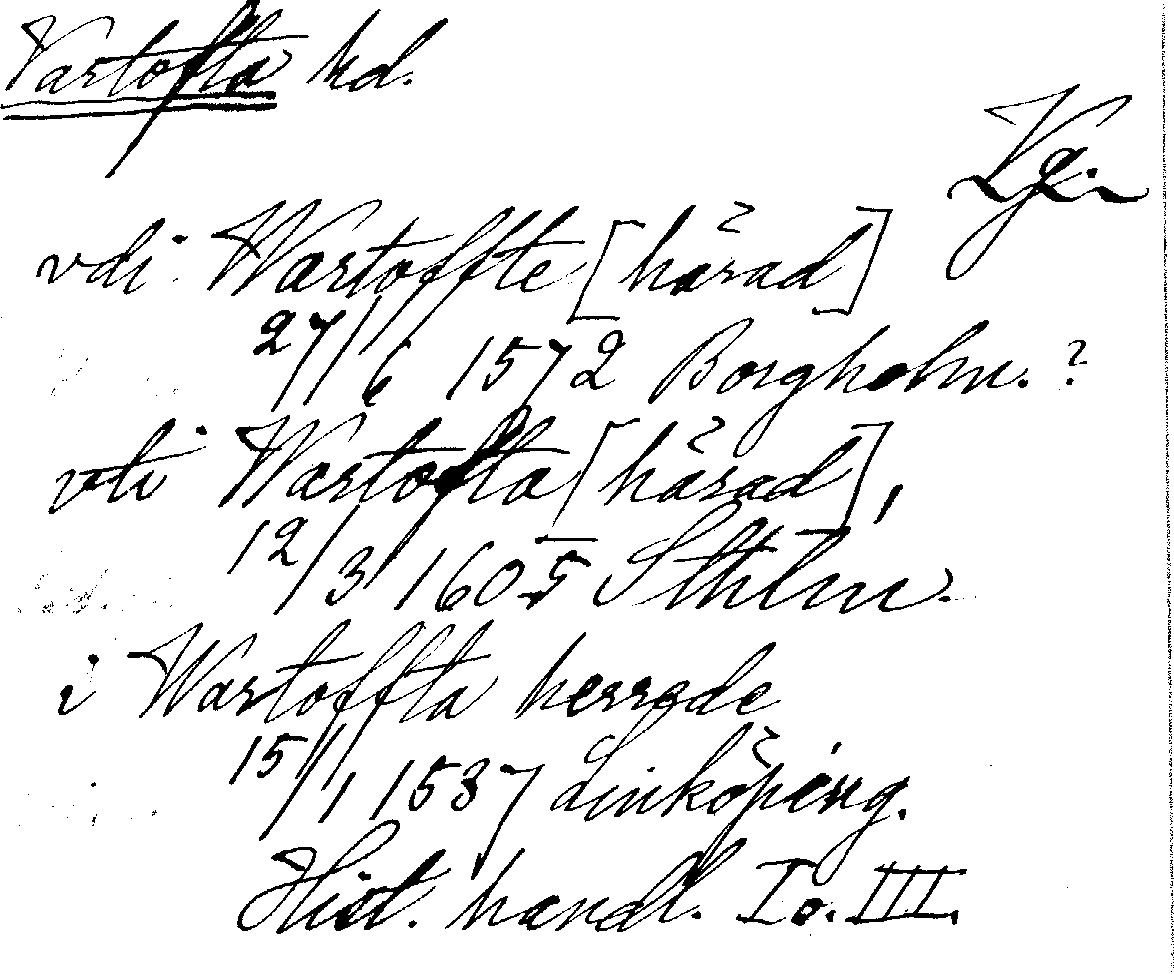 Vartofta hd.
Vg.
vdi Wartoffte [härad]
27/6 1572 Borgholm. ?
vti Wartofta [härad],
12/3 1605 Sthlm.
i Wartoffta herrade
15/1 1537 Linköping.
Hist. handl. I o. III.